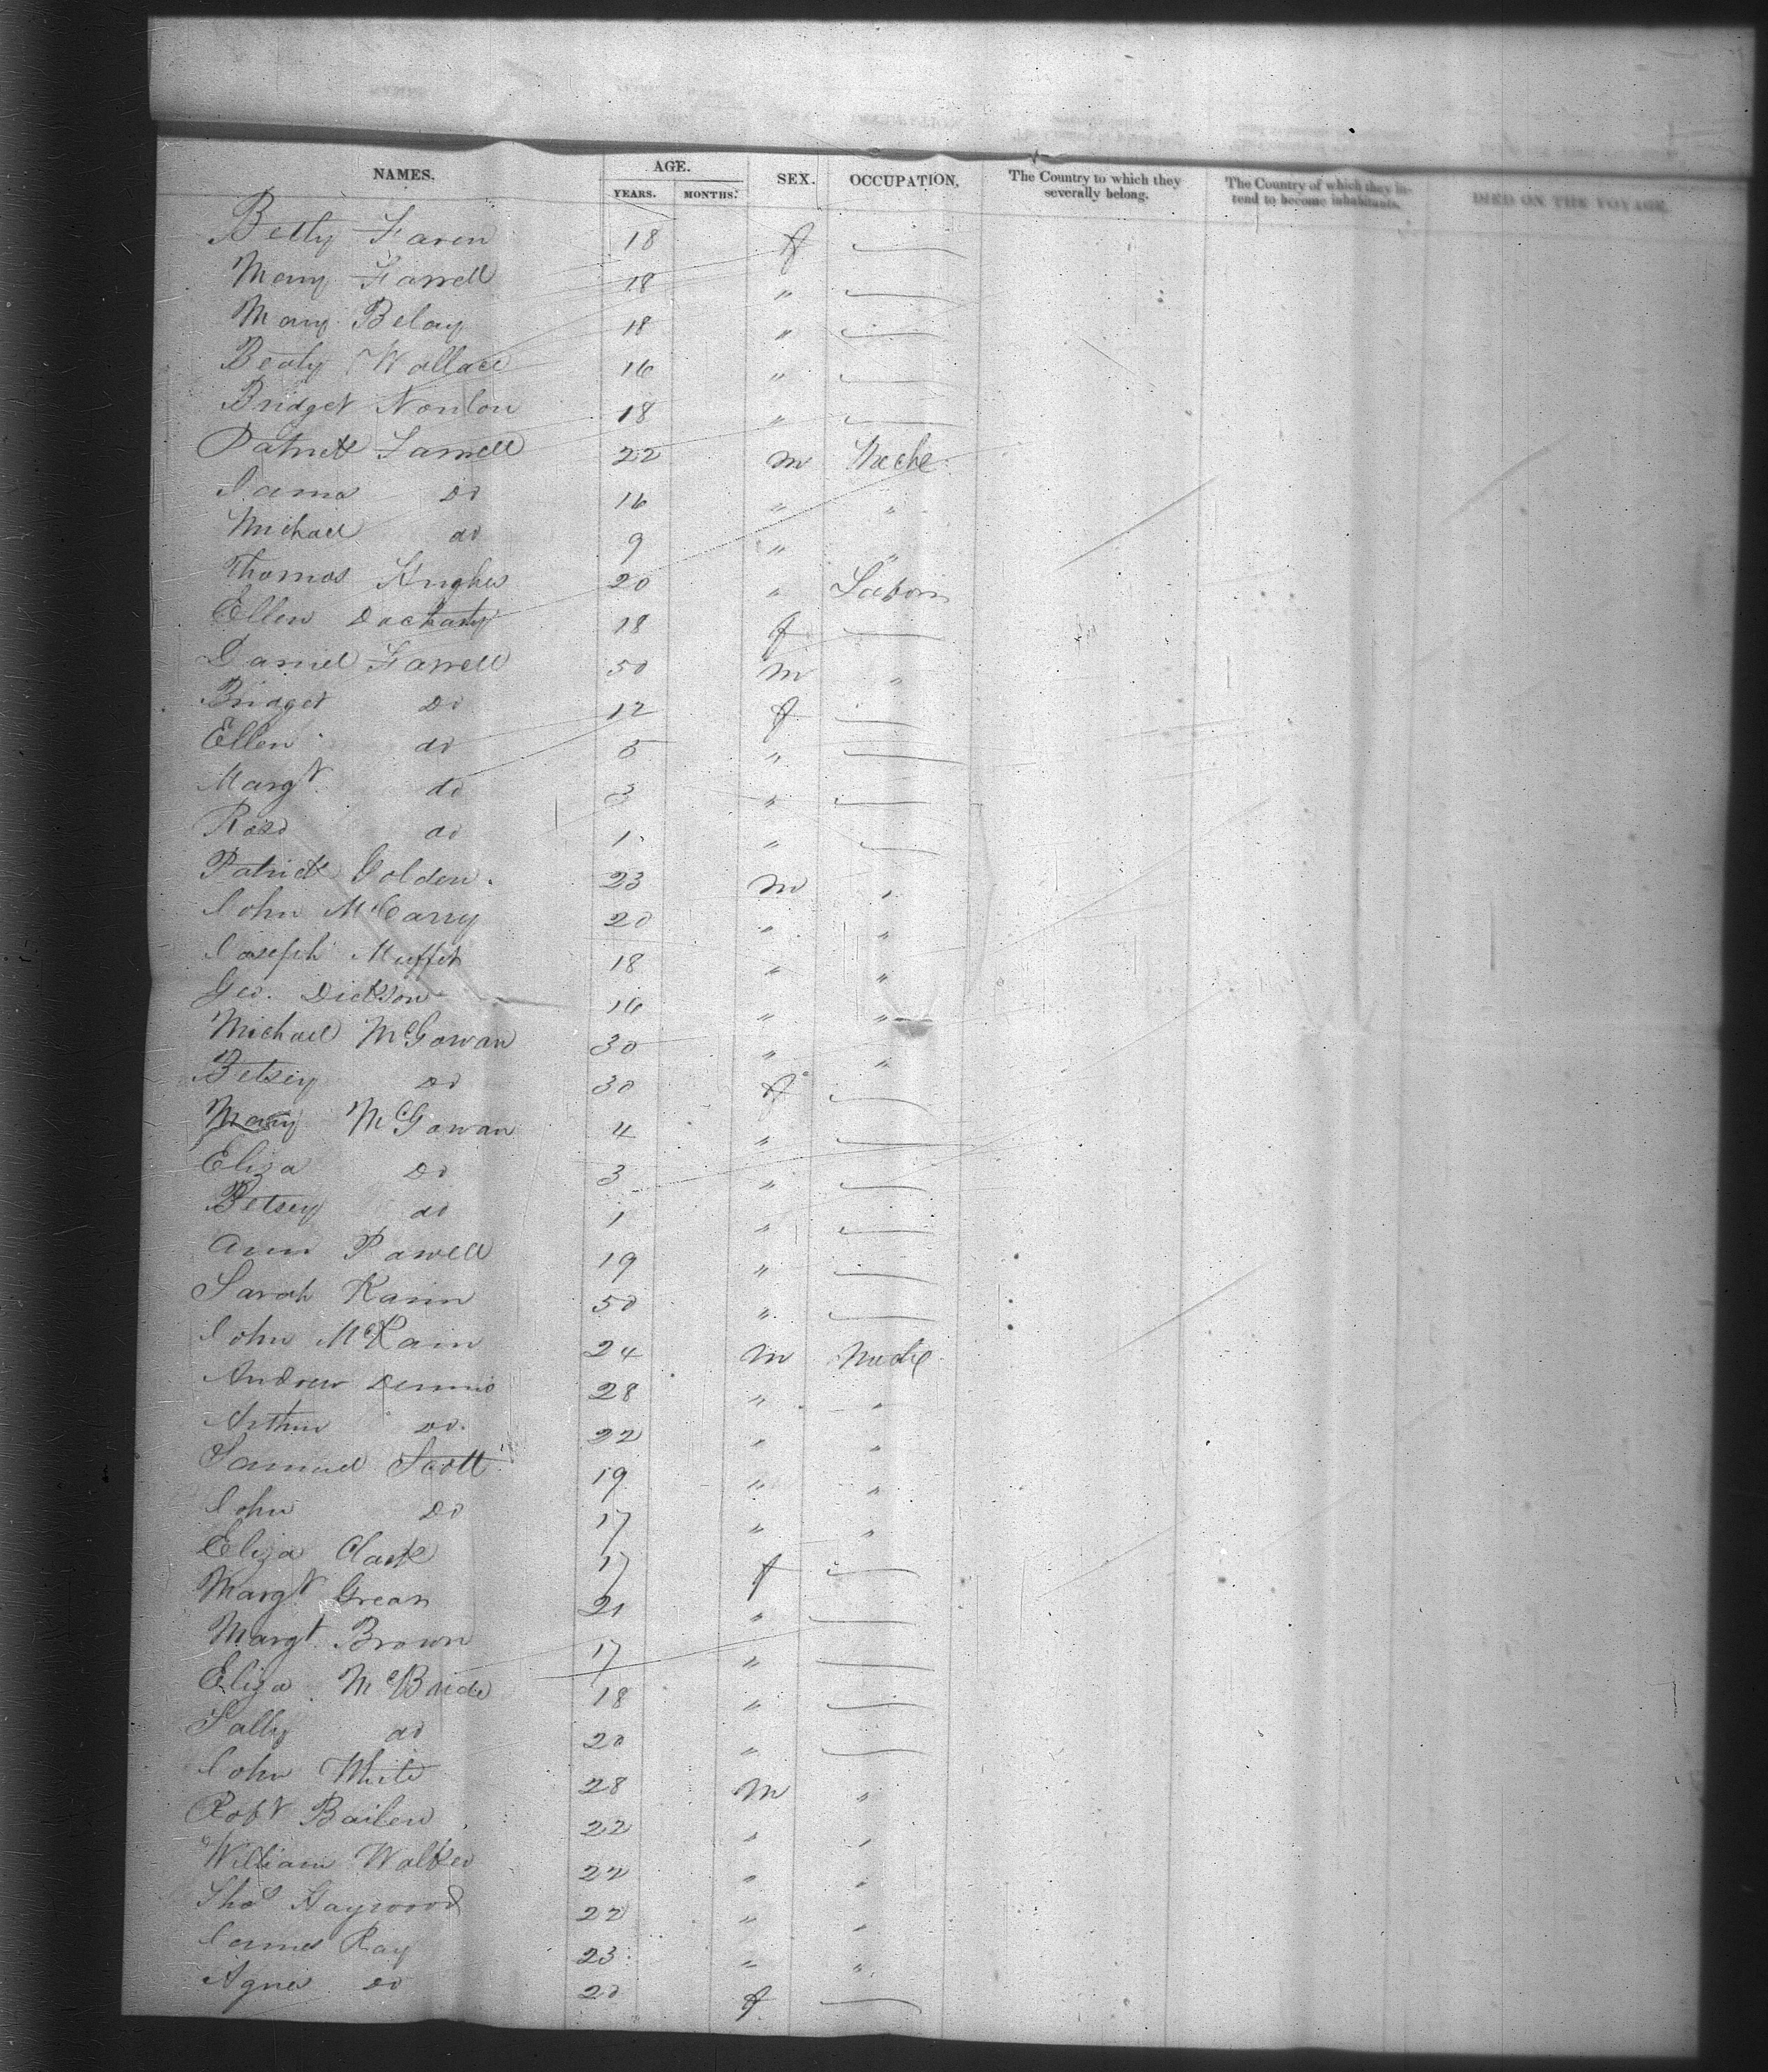 NAMES. AGE. SEX. OCCUPATION, The Country to which they severally belong. The Country of which they intend to become inhabitants. DIED ON THE VOYAGE.
YEARS. MONTHS.
Betty Faren 18 f
Mary Farrell 18 "
Mary Belay 18 "
Wallace 16 "
Bridget 18 "
Patrick Farrell 22 m Meche
James Do 16 " "
Michael do 9 " "
Thomas Hughes 20 " Labor
Ellen Dochaty 18 f
Daniel Farrell 50 m "
Bridget Do 12 f
Ellen do 5 "
Margt do 3 "
Rose do 1 "
Patrick Golden 23 m "
John McCarry 20 " "
Joseph Muffit 18 " "
Geo. Dickson 16 " "
Michael McGowan 30 " "
Betsey Do 30 f
Mary McGowan 4 "
Eliza Do 3 "
Betsey do 1 "
Ann Powell 19 "
Sarah 50 "
John McKain 24 m Meche
Andrew Dennis 28 " "
Arthur Do. 22 " "
Samuel Scott 19 " "
John Do 17 " "
Eliza Clark 17 f
Margt Grean 21 "
Margt. Brown 17 "
Eliza McBride 18 "
Sally do 20 "
John White 28 m "
Robt Bailen 22 " "
William Walker 22 " "
Thos Haywood 22 " "
James Ray 23 " "
Agnes Do 20 f